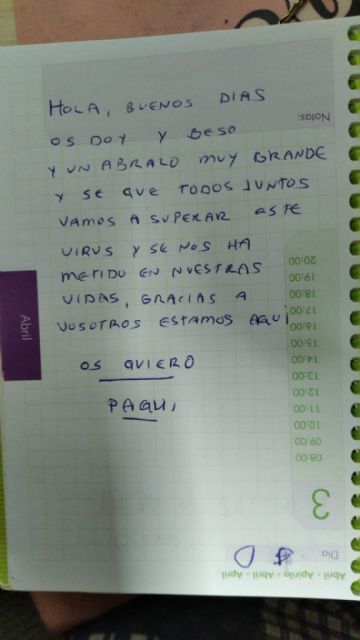 HOLA, BUENOS DIAS
OS DOY Y BESO
Y UN ABRAZO MUY GRANDE
Y SE QUE TODOS JUNTOS
VAMOS A SUPERAR ESTE
VIRUS Y SE NOS HA
METIDO EN NUESTRAS
VIDAS, GRACIAS A
VOSOTROS ESTAMOS AQUI
OS QUIERO
PAQUI
Notas:
20:00
19:00
18:00
17:00
16:00
15:00
14:00
13:00
12:00
11:00
10:00
09:00
08:00
Abril
3
Día:
D
Abril - Abril - Apirila - Abril - April